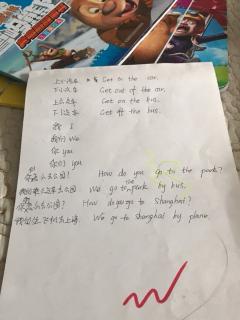 上小汽车 Get on the car.
下小汽车 Get out of the car.
上公交车 Get on the bus.
下公交车 Get off the bus.
我 I
我们 We
你 you
你们 you
你怎么去公园? How do you go to the park?
我们乘公交车去公园 We go to the park by bus.
你怎么去 ? How do you go to Shanghai?
我们坐飞机去上海. We go to Shanghai by plane.